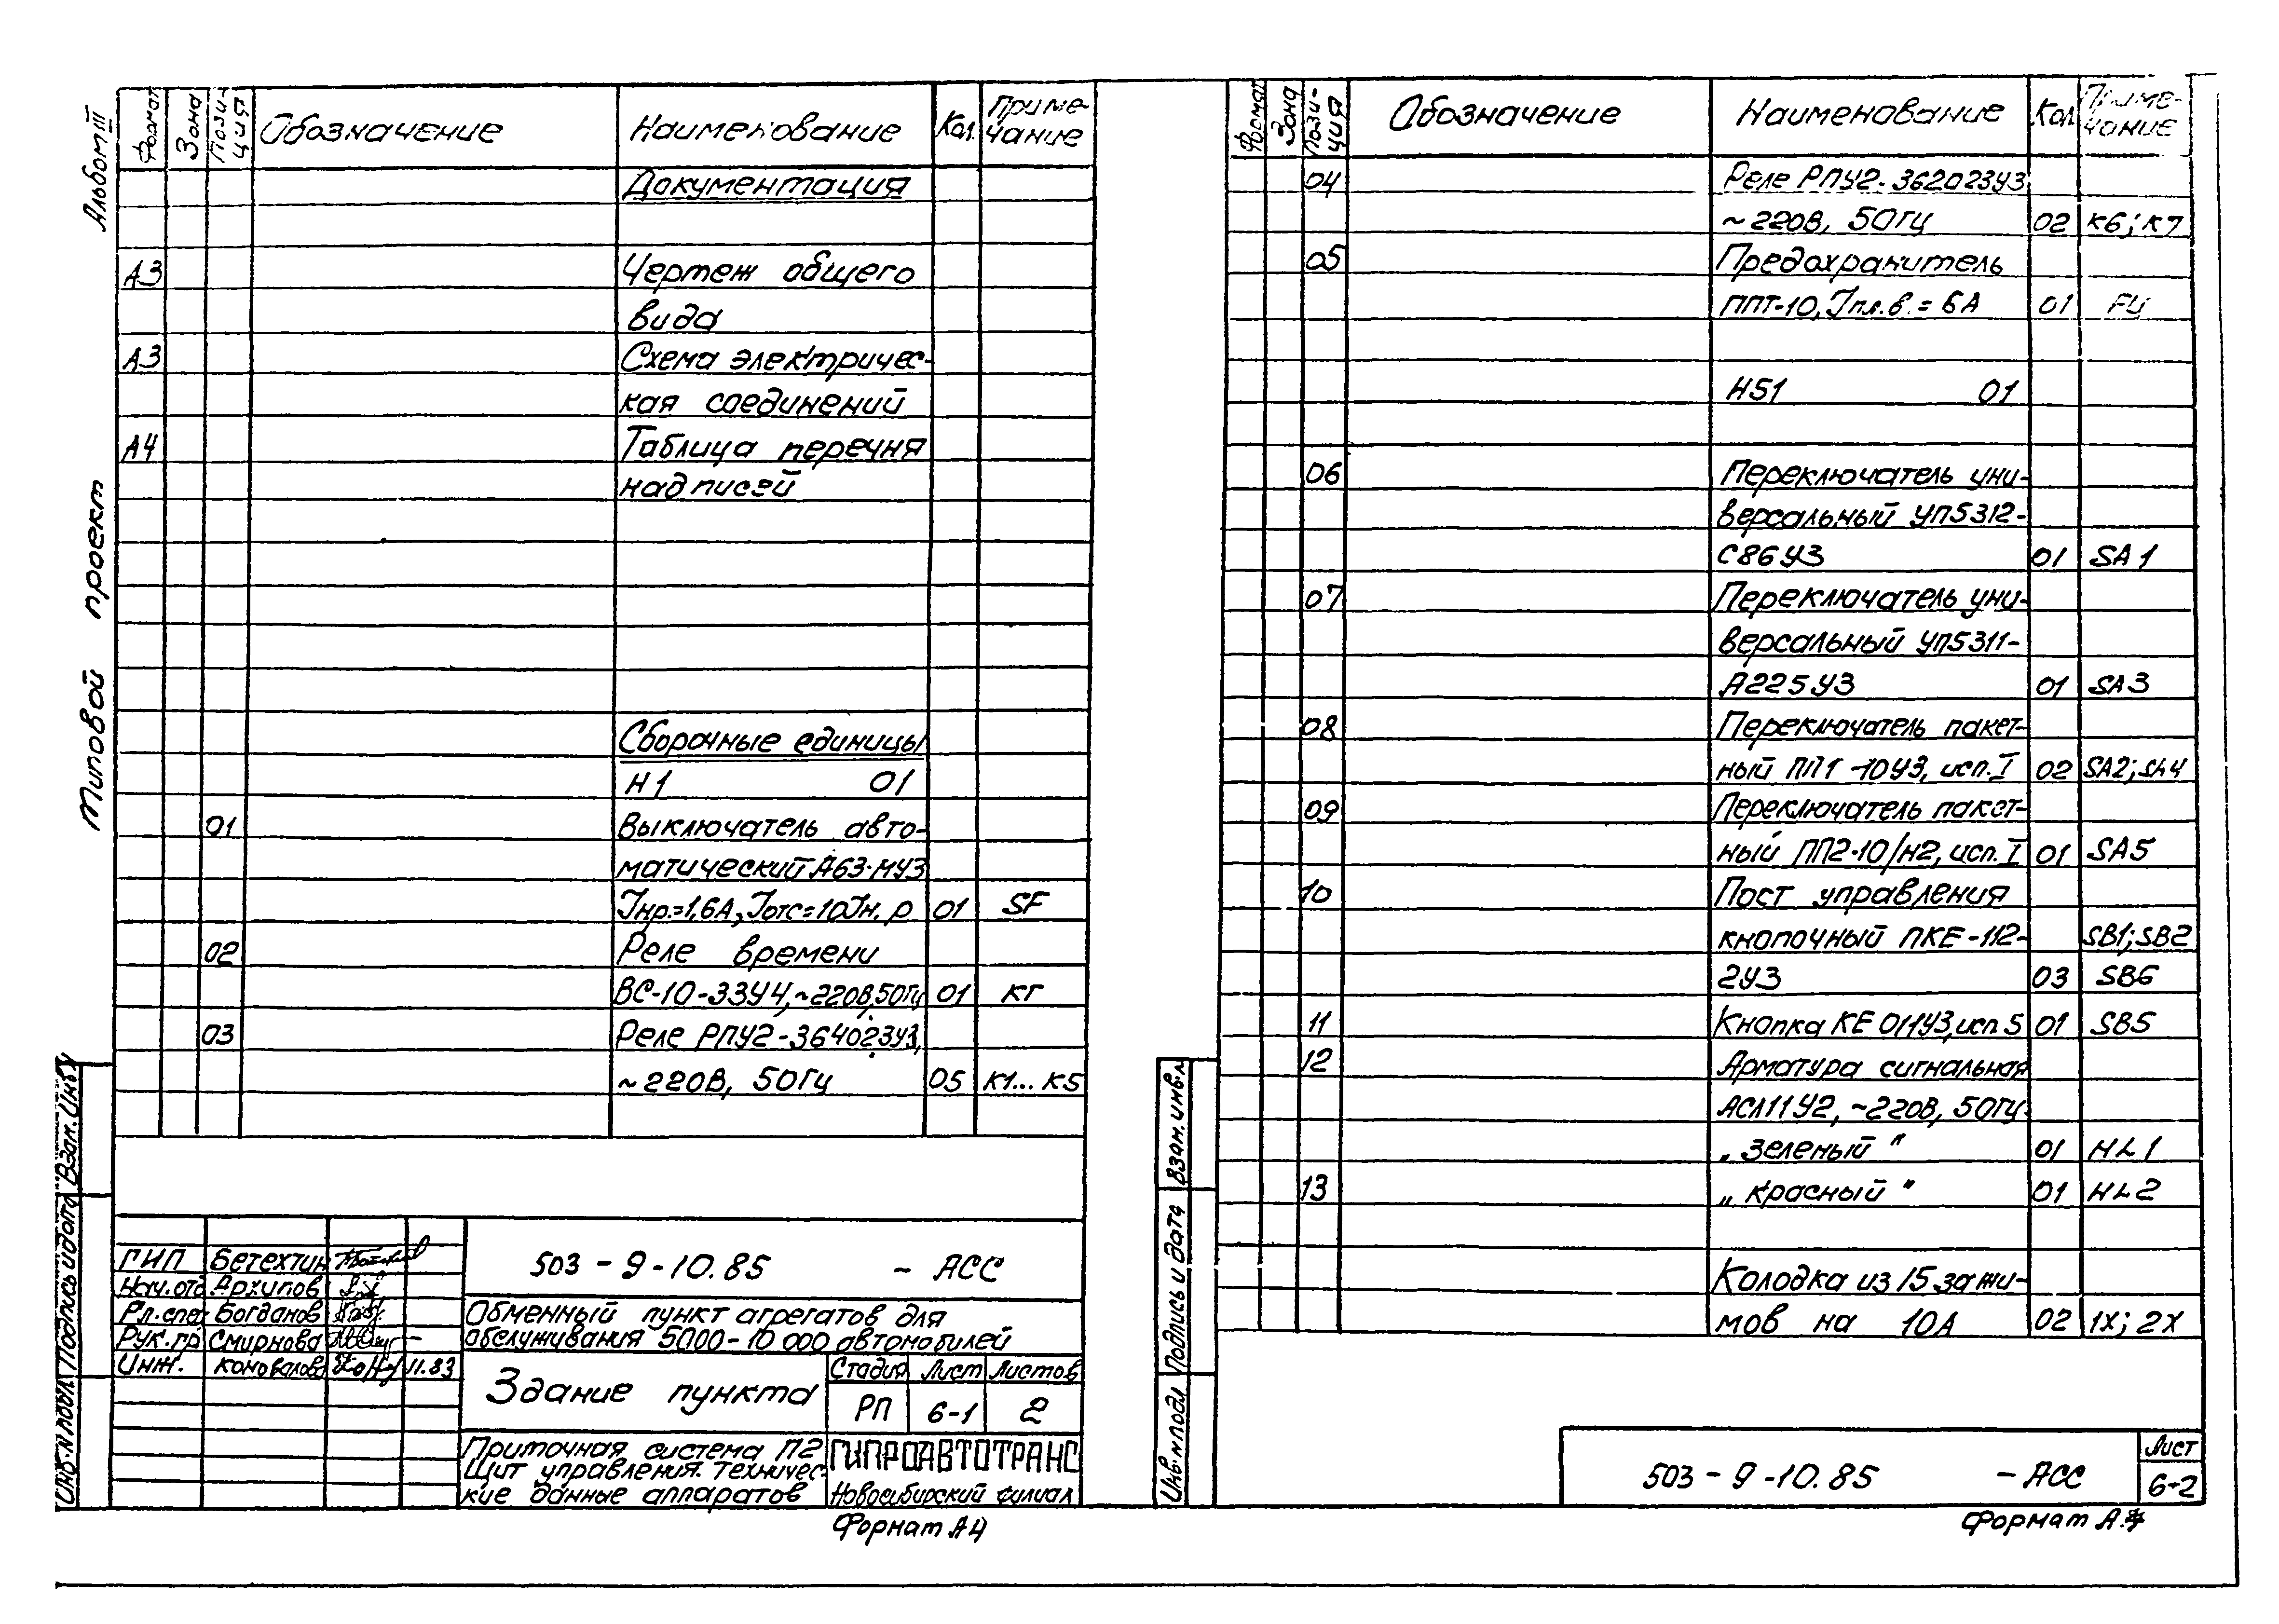 Альбом III
Типовой проект
Формат Зона Пози-ция Обозначение Наименование Кол. Приме-чание
Документация
А3 Чертеж общего
вида
А3 Схема электричес-
кая соединений
А4 Таблица перечня
надписей
Сборочные единицы
Н1 01
01 Выключатель авто-
матический А63-МУ3
Iнр.=1,6А, Iотс=10Iн.р 01 SF
02 Реле времени
ВС-10-33У4,~220В,50Гц 01 КТ
03 Реле РПУ2-364023У3,
~220В, 50Гц 05 К1...К5
Взам. инв.
Подпись и дата
Инв. № подл.
ГИП Бетехтин
Нач. отд Архипов
Гл. спец Богданов
Рук. гр Смирнова
Инж. Коновалова 11.83
503-9-10.85 -АСС
Обменный пункт агрегатов для
обслуживания 5000-10 000 автомобилей
Здание пункта
Стадия Лист Листов
РП 6-1 2
Приточная система П2
Щит управления. Техничес-
кие данные аппаратов
ГИПРОАВТОТРАНС
Новосибирский филиал
Формат А4
Формат Зона Пози-ция Обозначение Наименование Кол. Приме-чание
04 Реле РПУ2-362023У3
~220В, 50Гц 02 К6; К7
05 Предохранитель
ППТ-10, Iпл.в.=6А 01 FU
Н51 01
06 Переключатель уни-
версальный УП5312-
С86У3 01 SA1
07 Переключатель уни-
версальный УП5311-
А225У3 01 SA3
08 Переключатель пакет-
ный ПП1-10У3, исп. I 02 SA2; SA4
09 Переключатель пакет-
ный ПП2-10/Н2, исп. I 01 SA5
10 Пост управления
кнопочный ПКЕ-112- SB1; SB2
2У3 03 SB6
11 Кнопка КЕ 011У3, исп. 5 01 SB5
12 Арматура сигнальная
АСЛ11У2, ~220В, 50Гц.
„зеленый" 01 HL1
13 „красный" 01 HL2
Колодка из 15 зажи-
мов на 10А 02 1Х; 2Х
Взам. инв. №
Подпись и дата
Инв. № подл
503-9-10.85 -АСС
Лист
6-2
Формат А4